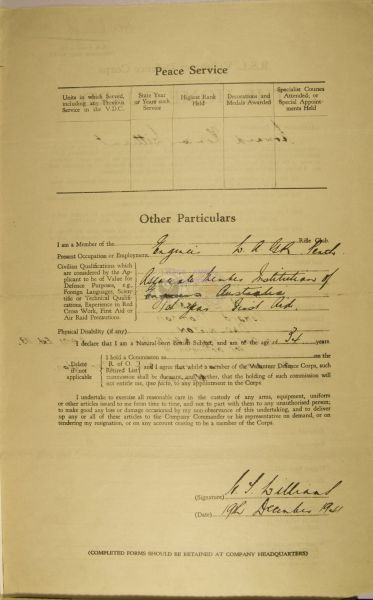 Peace Service
Units in which Served, including any Previous Service in the V.D.C.
State Year or Years such Service
Highest Rank Held
Decorations and Medals Awarded
Specialist Courses Attended, or Special Appointments Held
Other Particulars
I am a Member of the Rifle Club.
Present Occupation or Employment. Engineer W.A.G.R. Perth.
Civilian Qualifications which
are considered by the Ap-
plicant to be of Value for
Defence Purposes, e.g.,
Foreign Languages, Scien-
tific or Technical Qualifica-
tions, Experience in Red
Cross Work, First Aid or
Air Raid Precautions.
Associate Member Institution of
Engineers Australia
First Aid.
Physical Disability (if any)
I declare that I am a Natural-born British Subject, and am of the age of 34 years
Delete if not applicable
I hold a Commission as on the
R. of O.
Retired List
and I agree that whilst a member of the Volunteer Defence Corps, such
commission shall be dormant, and further, that the holding of such commission will
not entitle me, ipso facto, to any appointment in the Corps.
I undertake to exercise all reasonable care in the custody of any arms, equipment, uniform
or other articles issued to me from time to time, and not to part with them to any unauthorised person;
to make good any loss or damage occasioned by my non-observance of this undertaking, and to deliver
up any or all of these articles to the Company Commander or his representative on demand, or on
tendering my resignation, or on any account ceasing to be a member of the Corps.
(Signature)
(Date) 19th December 1941
(COMPLETED FORMS SHOULD BE RETAINED AT COMPANY HEADQUARTERS)